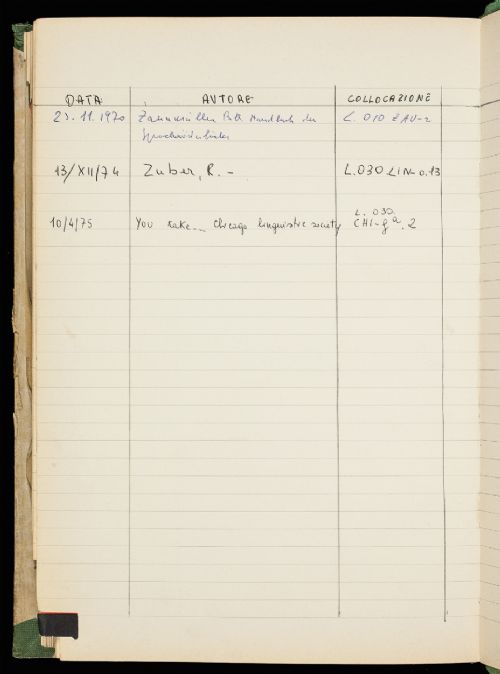 DATA AUTORE COLLOCAZIONE
11.1970 Handbuch der L. 010
13/XII/74 Zuber, R. - L.030 LIN 0.13
L. 030.
10/4/75 You take... Chicago linguistic society CHI-g a. 2